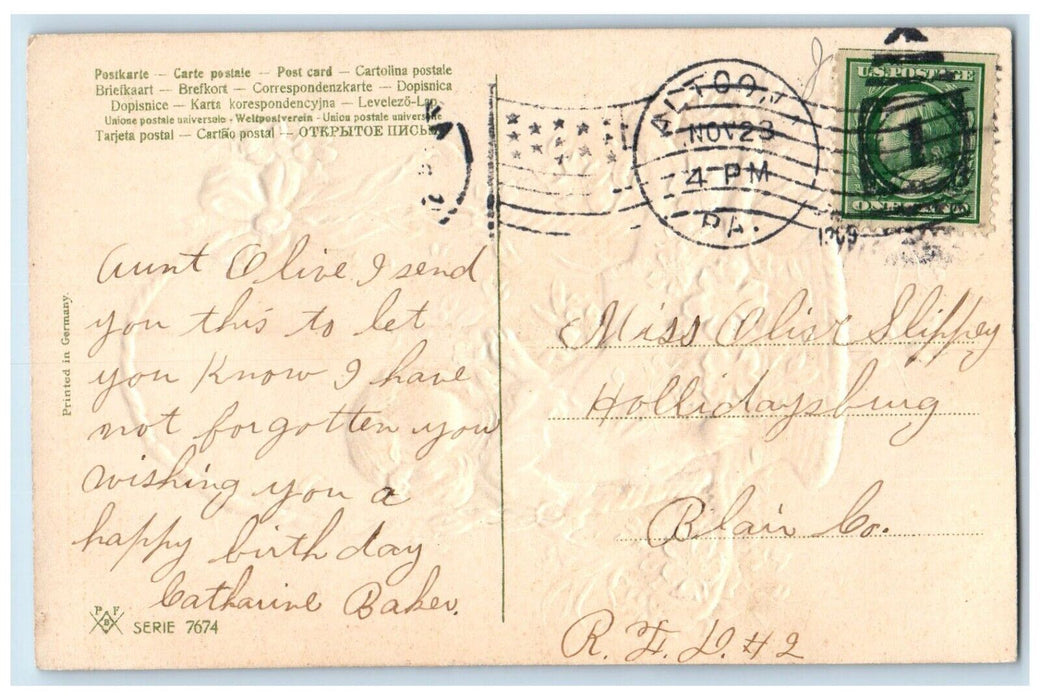 Postkarte — Carte postale — Post card — Cartolina postale
Briefkaart — Brefkort — Correspondenzkarte — Dopisnica
Dopisnice — Karta korespondencyjna — Levelező-Lap
Unione postale universale - Weltpostverein - Union postale universelle
Tarjeta postal — Cartão postal — ОТКРЫТОЕ ПИСЬ
ALTOONA
NOV 23
4 PM
PA.
1909
U.S. POSTAGE
1
ONE CENT
Aunt Olive I send
you this to let
you know I have
not forgotten you
wishing you a
happy birth day
Catharine Baker.
Miss Olive Slippey
Hollidaysburg
Blair Co.
R. F. D. #2
Printed in Germany.
P F B
SERIE 7674